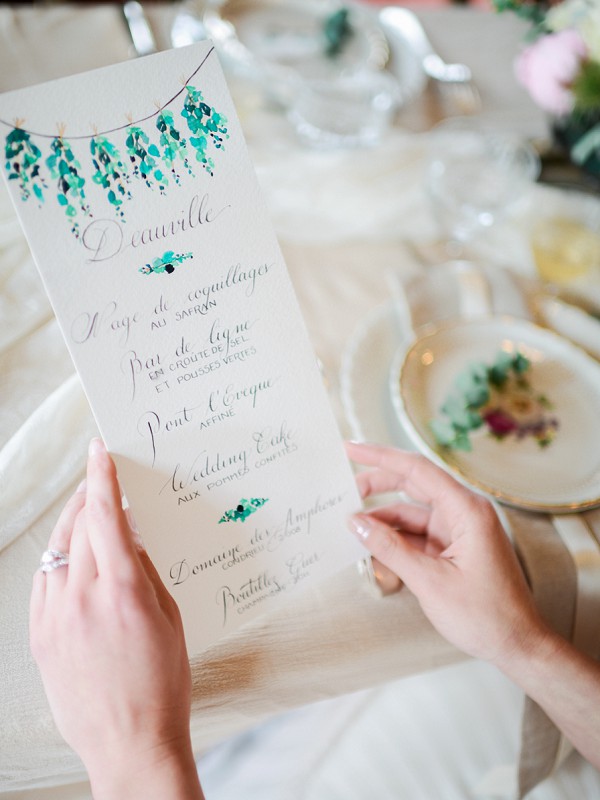 Deauville
Nage de coquillages
AU SAFRAN
Bar de ligne
EN CROUTE DE SEL
ET POUSSES VERTES
Pont l'Eveque
AFFINÉ
Wedding Cake
AUX POMMES CONFITES
Domaine des Amphores
CONDRIEU 2008
CHAMPAGNE